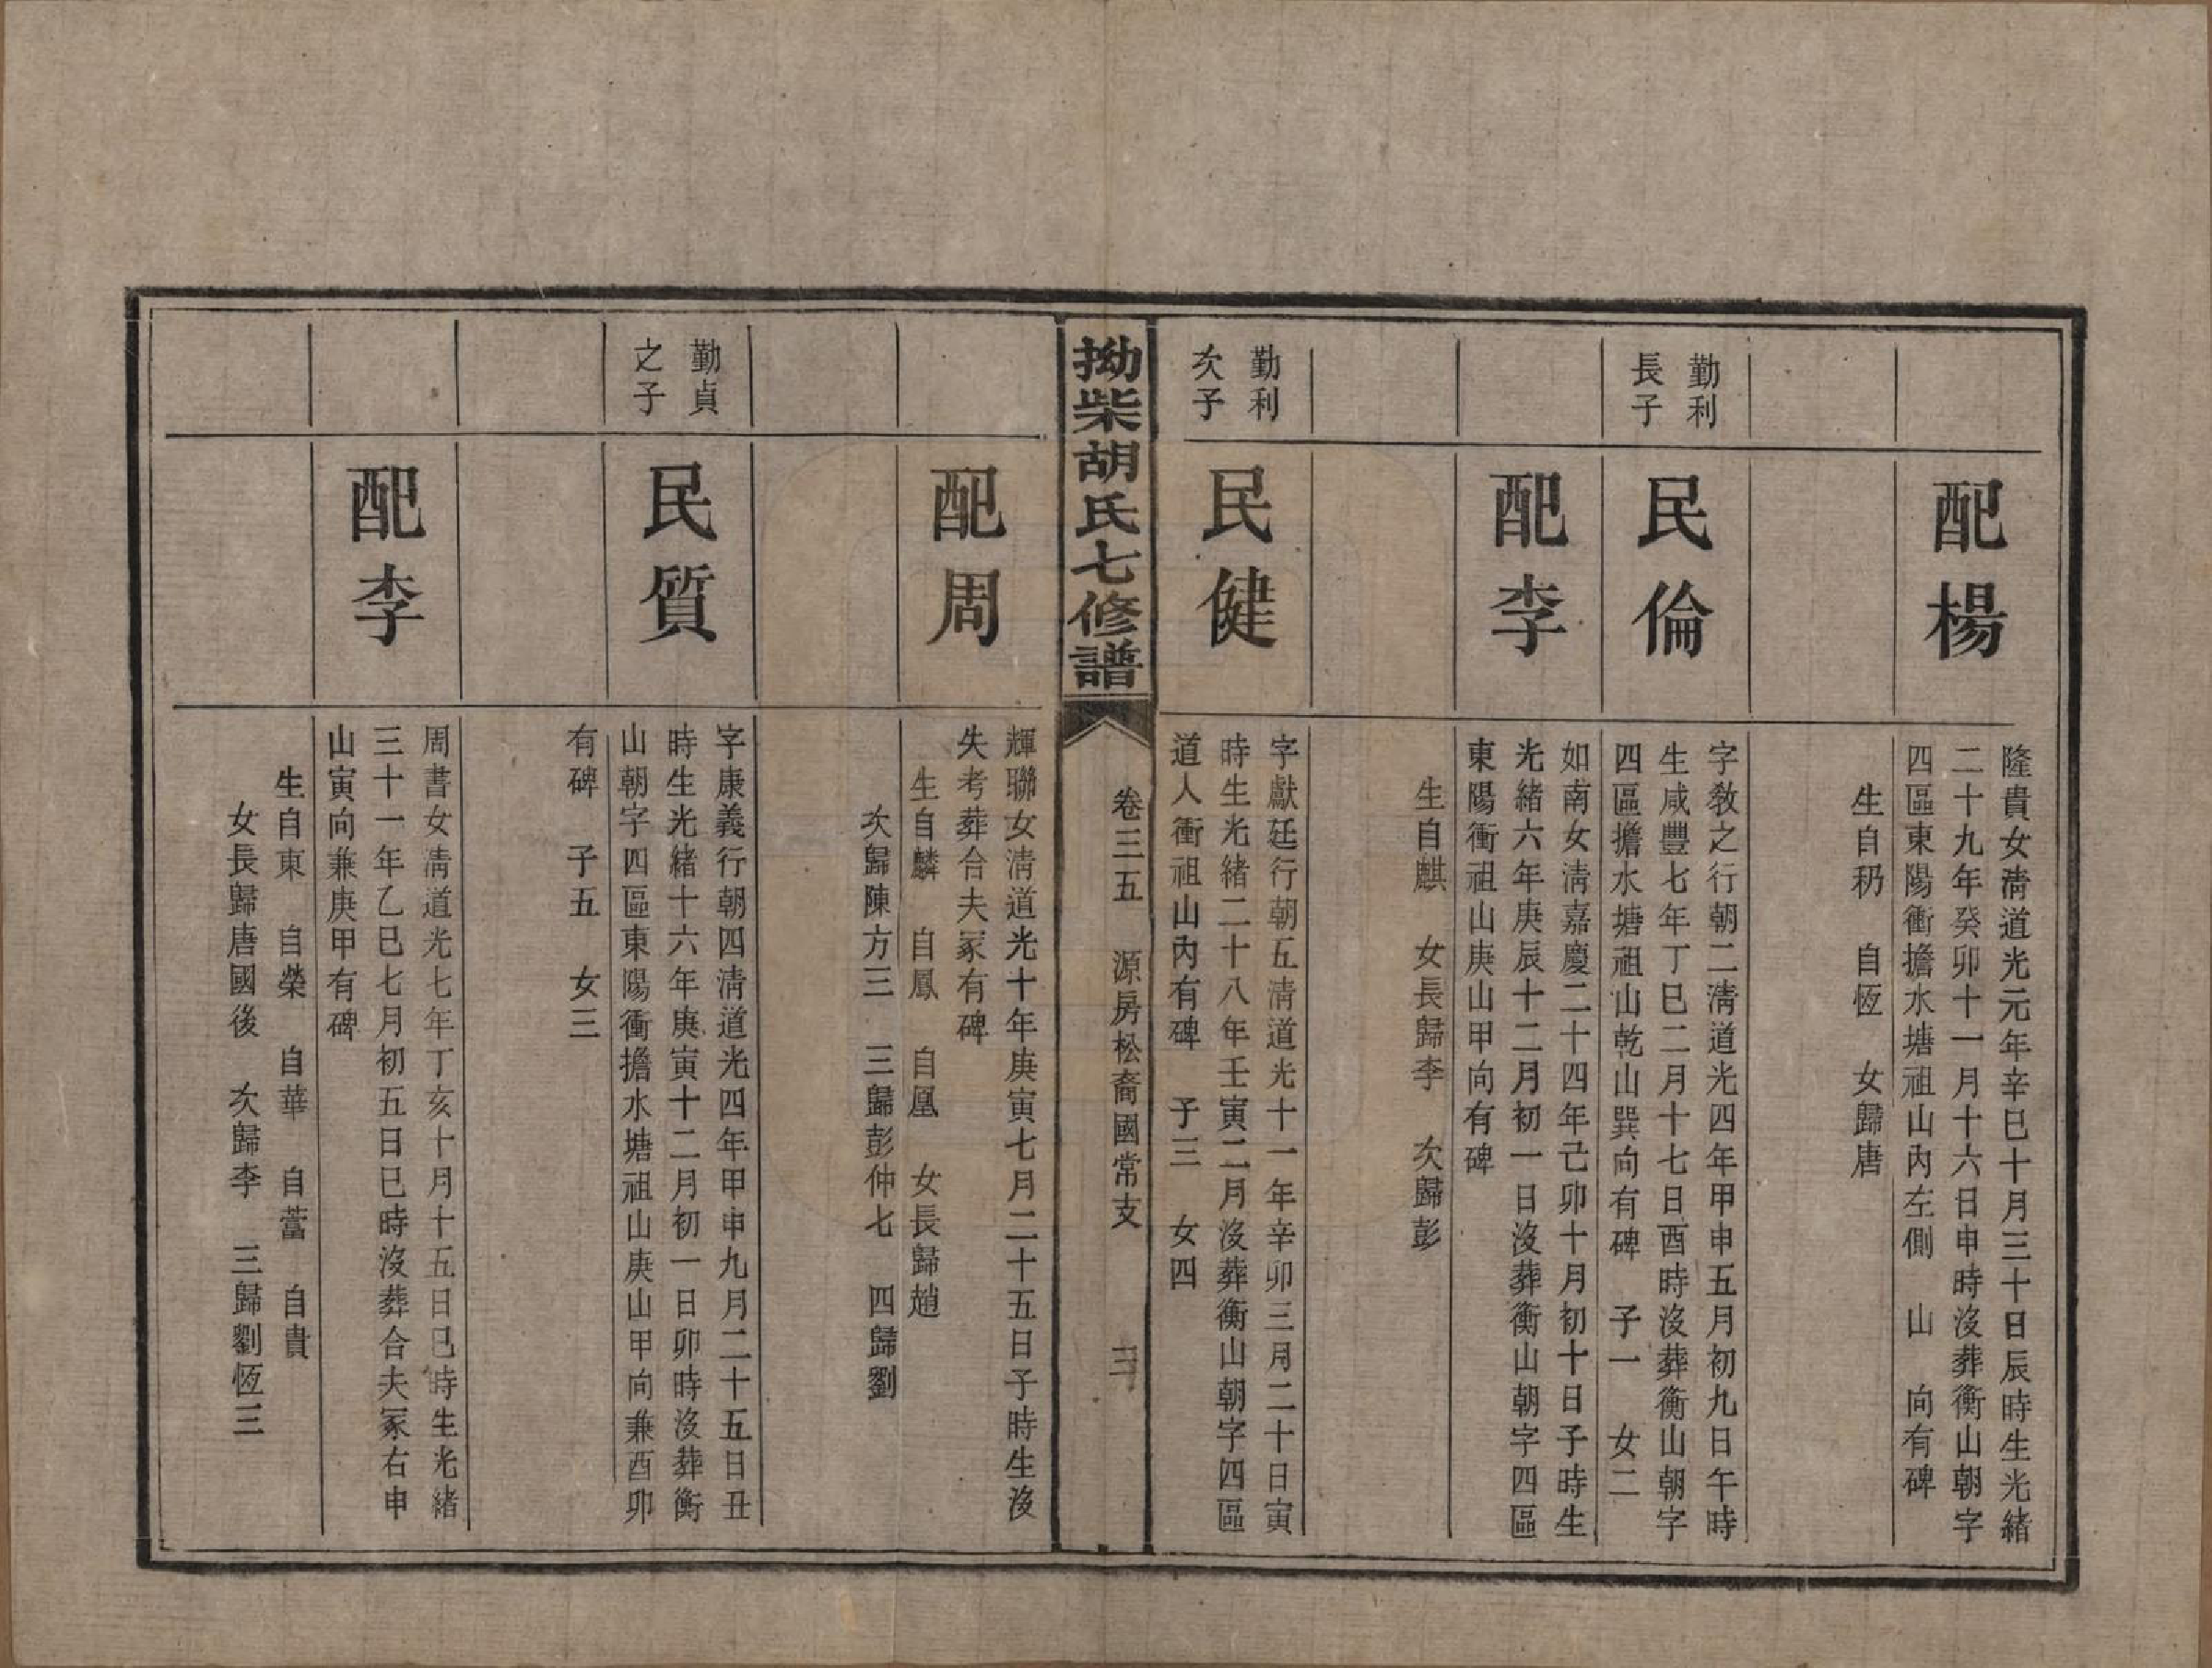 配楊
隆貴女清道光元年辛巳十月三十日辰時生光緒
二十九年癸卯十一月十六日申時沒葬衡山朝字
四區東陽衝擔水塘祖山內左側　山　向有碑
生自礽　自恆　女歸唐
勤利
長子
民倫
字敎之行朝二清道光四年甲申五月初九日午時
生咸豐七年丁巳二月十七日酉時沒葬衡山朝字
四區擔水塘祖山乾山巽向有碑　子一　女二
配李
如南女清嘉慶二十四年己卯十月初十日子時生
光緒六年庚辰十二月初一日沒葬衡山朝字四區
東陽衝祖山庚山甲向有碑
生自麒　女長歸李　次歸彭
勤利
次子
民健
字獻廷行朝五清道光十一年辛卯三月二十日寅
時生光緒二十八年壬寅二月沒葬衡山朝字四區
道人衝祖山內有碑　子三　女四
拗柴胡氏七修譜
卷三五　源房松裔國常支
配周
輝聯女清道光十年庚寅七月二十五日子時生沒
失考葬合夫冢有碑
生自麟　自鳳　自凰　女長歸趙
次歸陳方三　三歸彭仲七　四歸劉
勤貞
之子
民質
字康義行朝四清道光四年甲申九月二十五日丑
時生光緒十六年庚寅十二月初一日卯時沒葬衡
山朝字四區東陽衝擔水塘祖山庚山甲向兼酉卯
有碑　子五　女三
配李
周書女清道光七年丁亥十月十五日巳時生光緒
三十一年乙巳七月初五日巳時沒葬合夫冢右申
山寅向兼庚甲有碑
生自東　自榮　自華　自蕾　自貴
女長歸唐國後　次歸李　三歸劉恆三